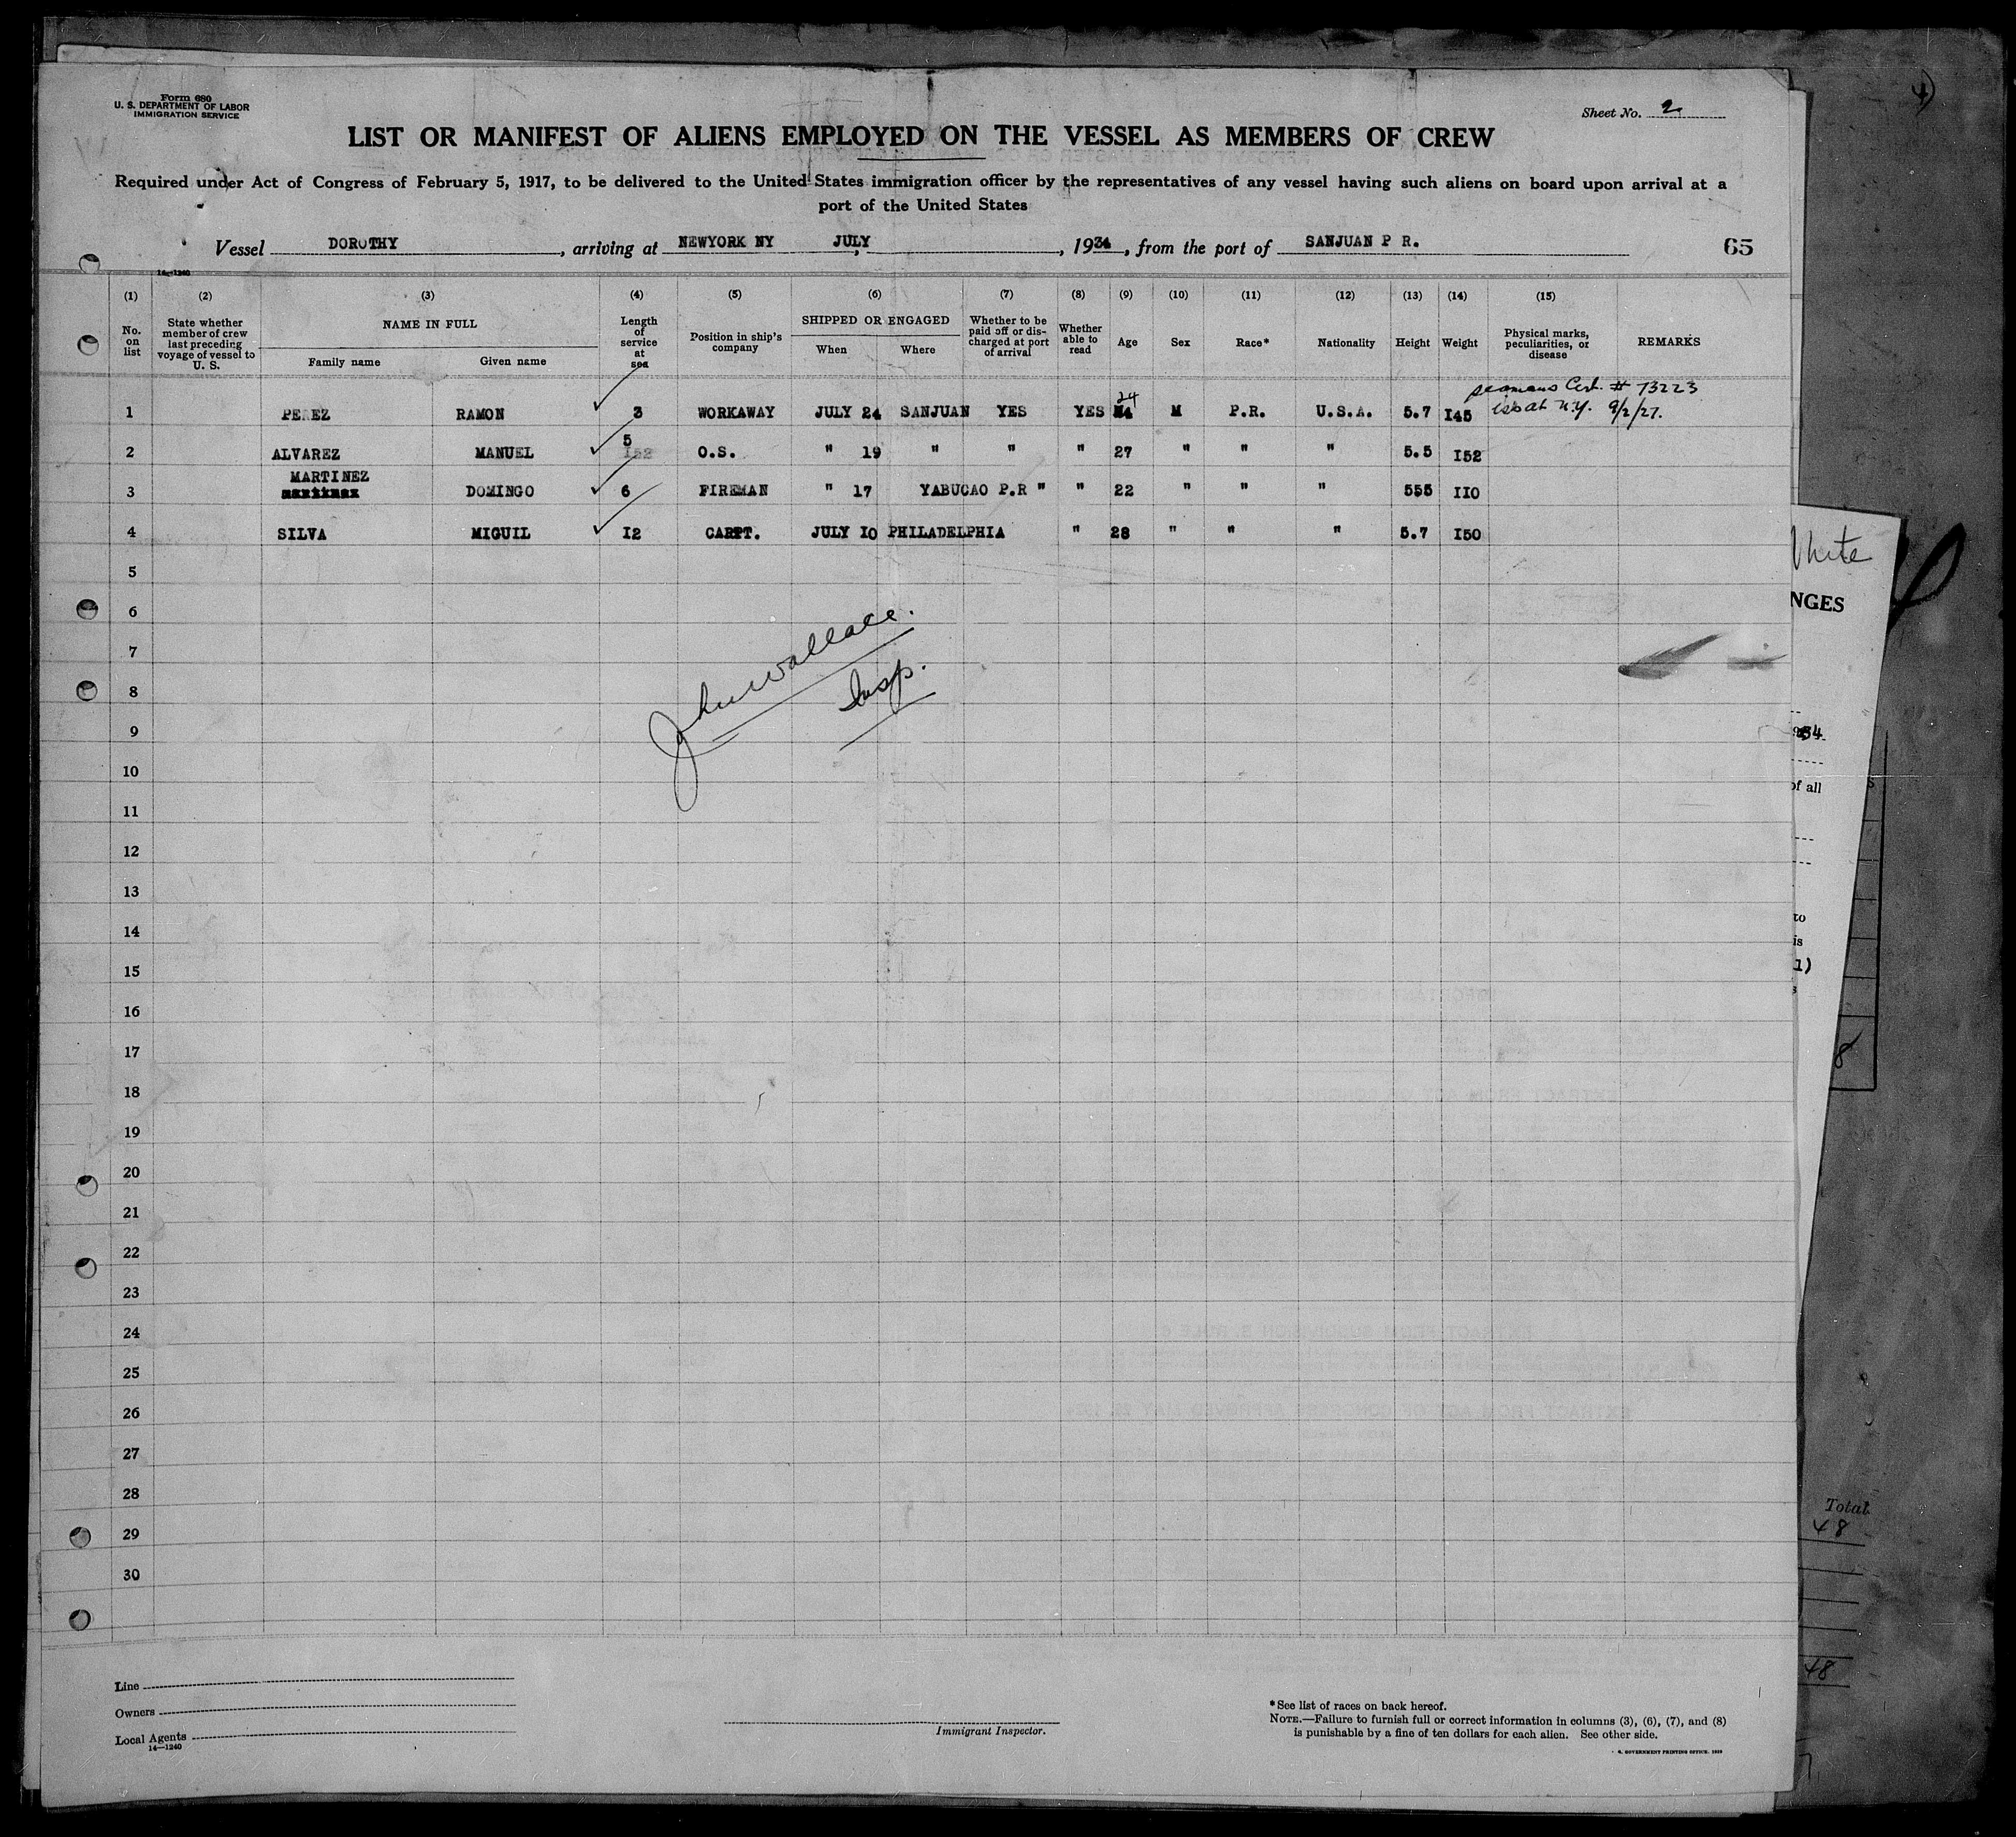 Form 680
U. S. DEPARTMENT OF LABOR
IMMIGRATION SERVICE
Sheet No. 2
LIST OR MANIFEST OF ALIENS EMPLOYED ON THE VESSEL AS MEMBERS OF CREW
Required under Act of Congress of February 5, 1917, to be delivered to the United States immigration officer by the representatives of any vessel having such aliens on board upon arrival at a
port of the United States
Vessel DOROTHY, arriving at NEWYORK NY JULY, 1934, from the port of SANJUAN P R. 65
14—1240
(1) (2) (3) (4) (5) (6) (7) (8) (9) (10) (11) (12) (13) (14) (15)
No. on list State whether member of crew last preceding voyage of vessel to U. S. NAME IN FULL Family name Given name Length of service at sea Position in ship's company SHIPPED OR ENGAGED When Where Whether to be paid off or discharged at port of arrival Whether able to read Age Sex Race* Nationality Height Weight Physical marks, peculiarities, or disease REMARKS
seamans Cert. # 73223
24
1 PEREZ RAMON 3 WORKAWAY JULY 24 SANJUAN YES YES M U.S.A. P.R. 5.7 I45 iss at N.Y. 9/2/27.
5
2 ALVAREZ MANUEL I52 O.S. " 19 " " " 27 " " " 5.5 I52
MARTINEZ
3 DOMINGO 6 FIREMAN " 17 YABUCAO P.R " " 22 " " " 555 IIO
4 SILVA MIGUIL I2 CARPT. JULY IO PHILADELPHIA " 28 " " " 5.7 I50
5
6
7
8
9
10
11
12
13
14
15
16
17
18
19
20
21
22
23
24
25
26
27
28
29
30
John Wallace.
Insp.
Line
Owners
Local Agents
14—1240
Immigrant Inspector.
*See list of races on back hereof.
NOTE.—Failure to furnish full or correct information in columns (3), (6), (7), and (8)
is punishable by a fine of ten dollars for each alien. See other side.
White
NGES
34
of all
to
is
1)
8
Total
48
48